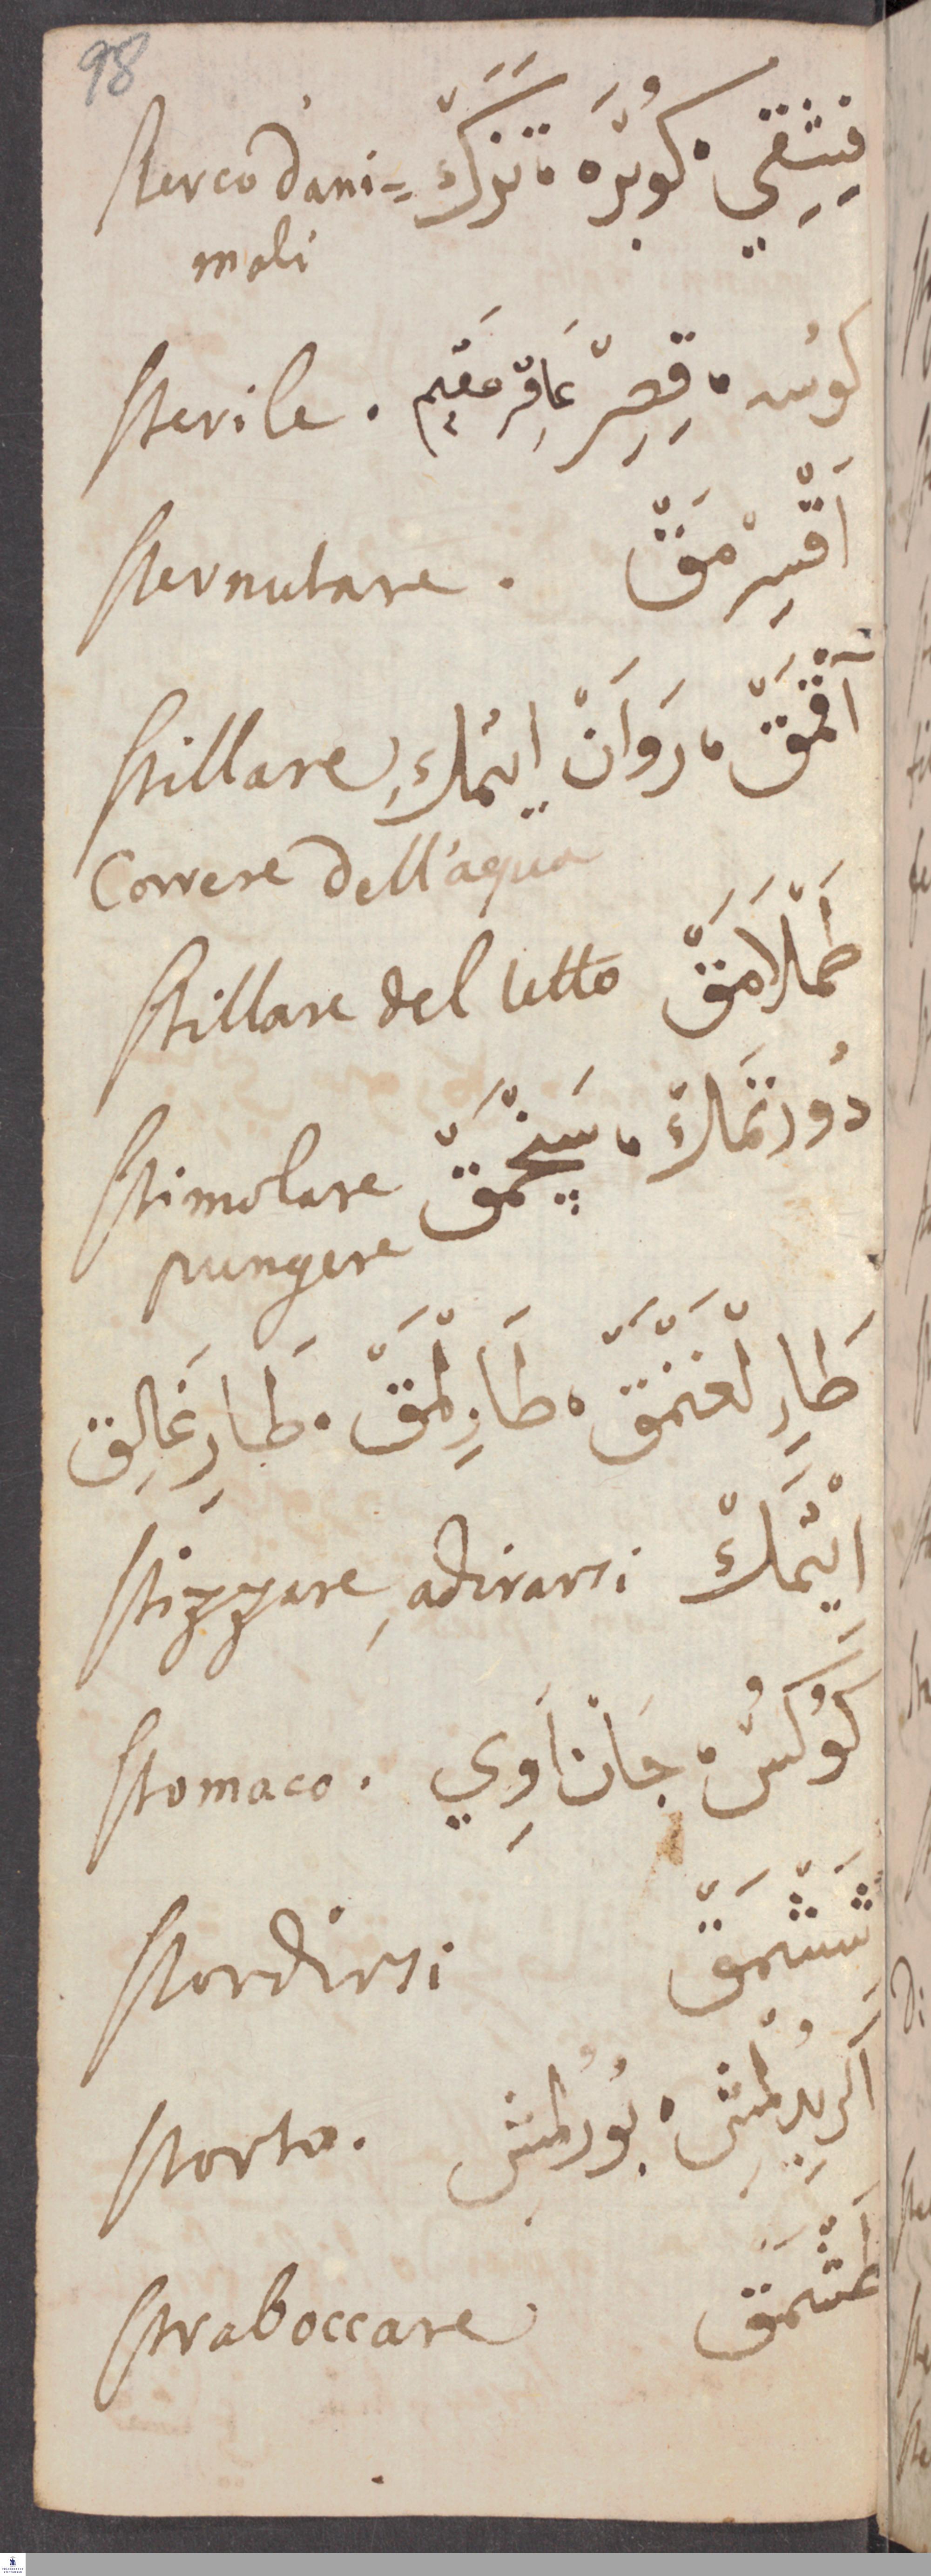 98
sterco d'ani= فِشْقِي، كُوبْرَه، تَزَكْ
mali
sterile. كوسه، قِصِرْ عَاقِرْ عَقِيم
sternutare. اَقْسِرْمَقْ
stillare آقْمَقْ، رَوَانْ اِيتْمك
Correre dell'aqua
stillare del tetto طَمْلَامَقْ
stimolare دُورتمَكْ،
pungere
طَارِلْغَنْمَقْ، طَارِلْمَقْ، طَارِغَالِق
stizzare, adirarsi اِيتْمَكْ
stomaco. كُوكُسْ، جَانْ اَوِي
stordirsi شَشْمَقْ
storto. اَكْرِيلْمِشْ، بُورُلمِش
straboccare طَشْمَقْ